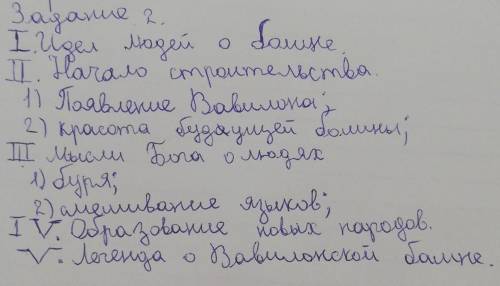 Задание 2.
I. Идея людей о башне.
II. Начало строительства.
1) Появление Вавилона;
2) красота будущей башни;
III Мысли Бога о людях
1) буря;
2) смешивание языков;
IV. Образование новых народов.
V. Легенда о Вавилонской башне.